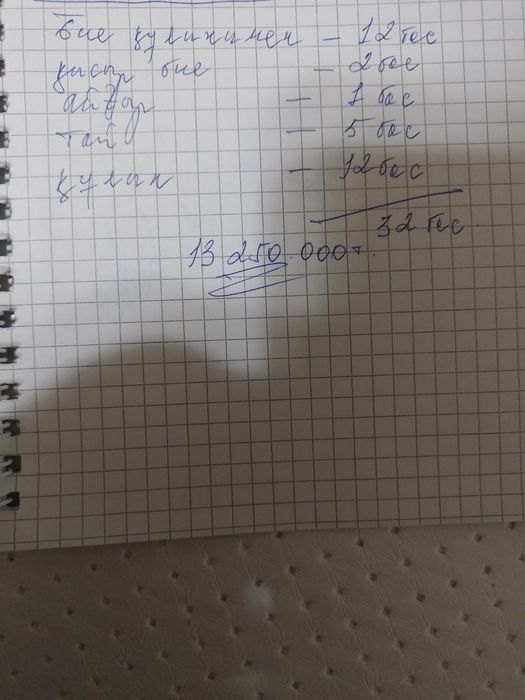 Бие құлынымен – 12 бас
қысыр бие – 2 бас
айғыр – 1 бас
тай – 5 бас
құлын – 12 бас
32 бас.
13 250.000т.